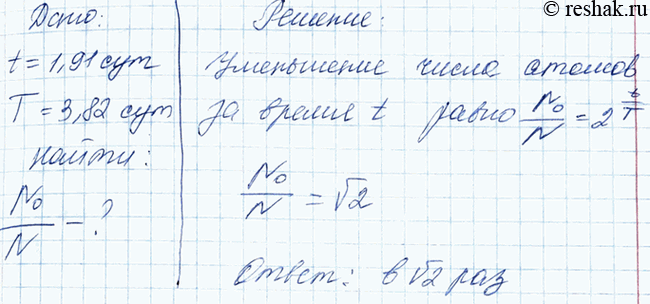 © reshak.ru
Дано:
t = 1,91 сут
T = 3,82 сут
Найти:
N₀/N - ?
Решение:
Уменьшение числа атомов
за время t равно N₀/N = 2^(t/T)
N₀/N = √2
Ответ: в √2 раз